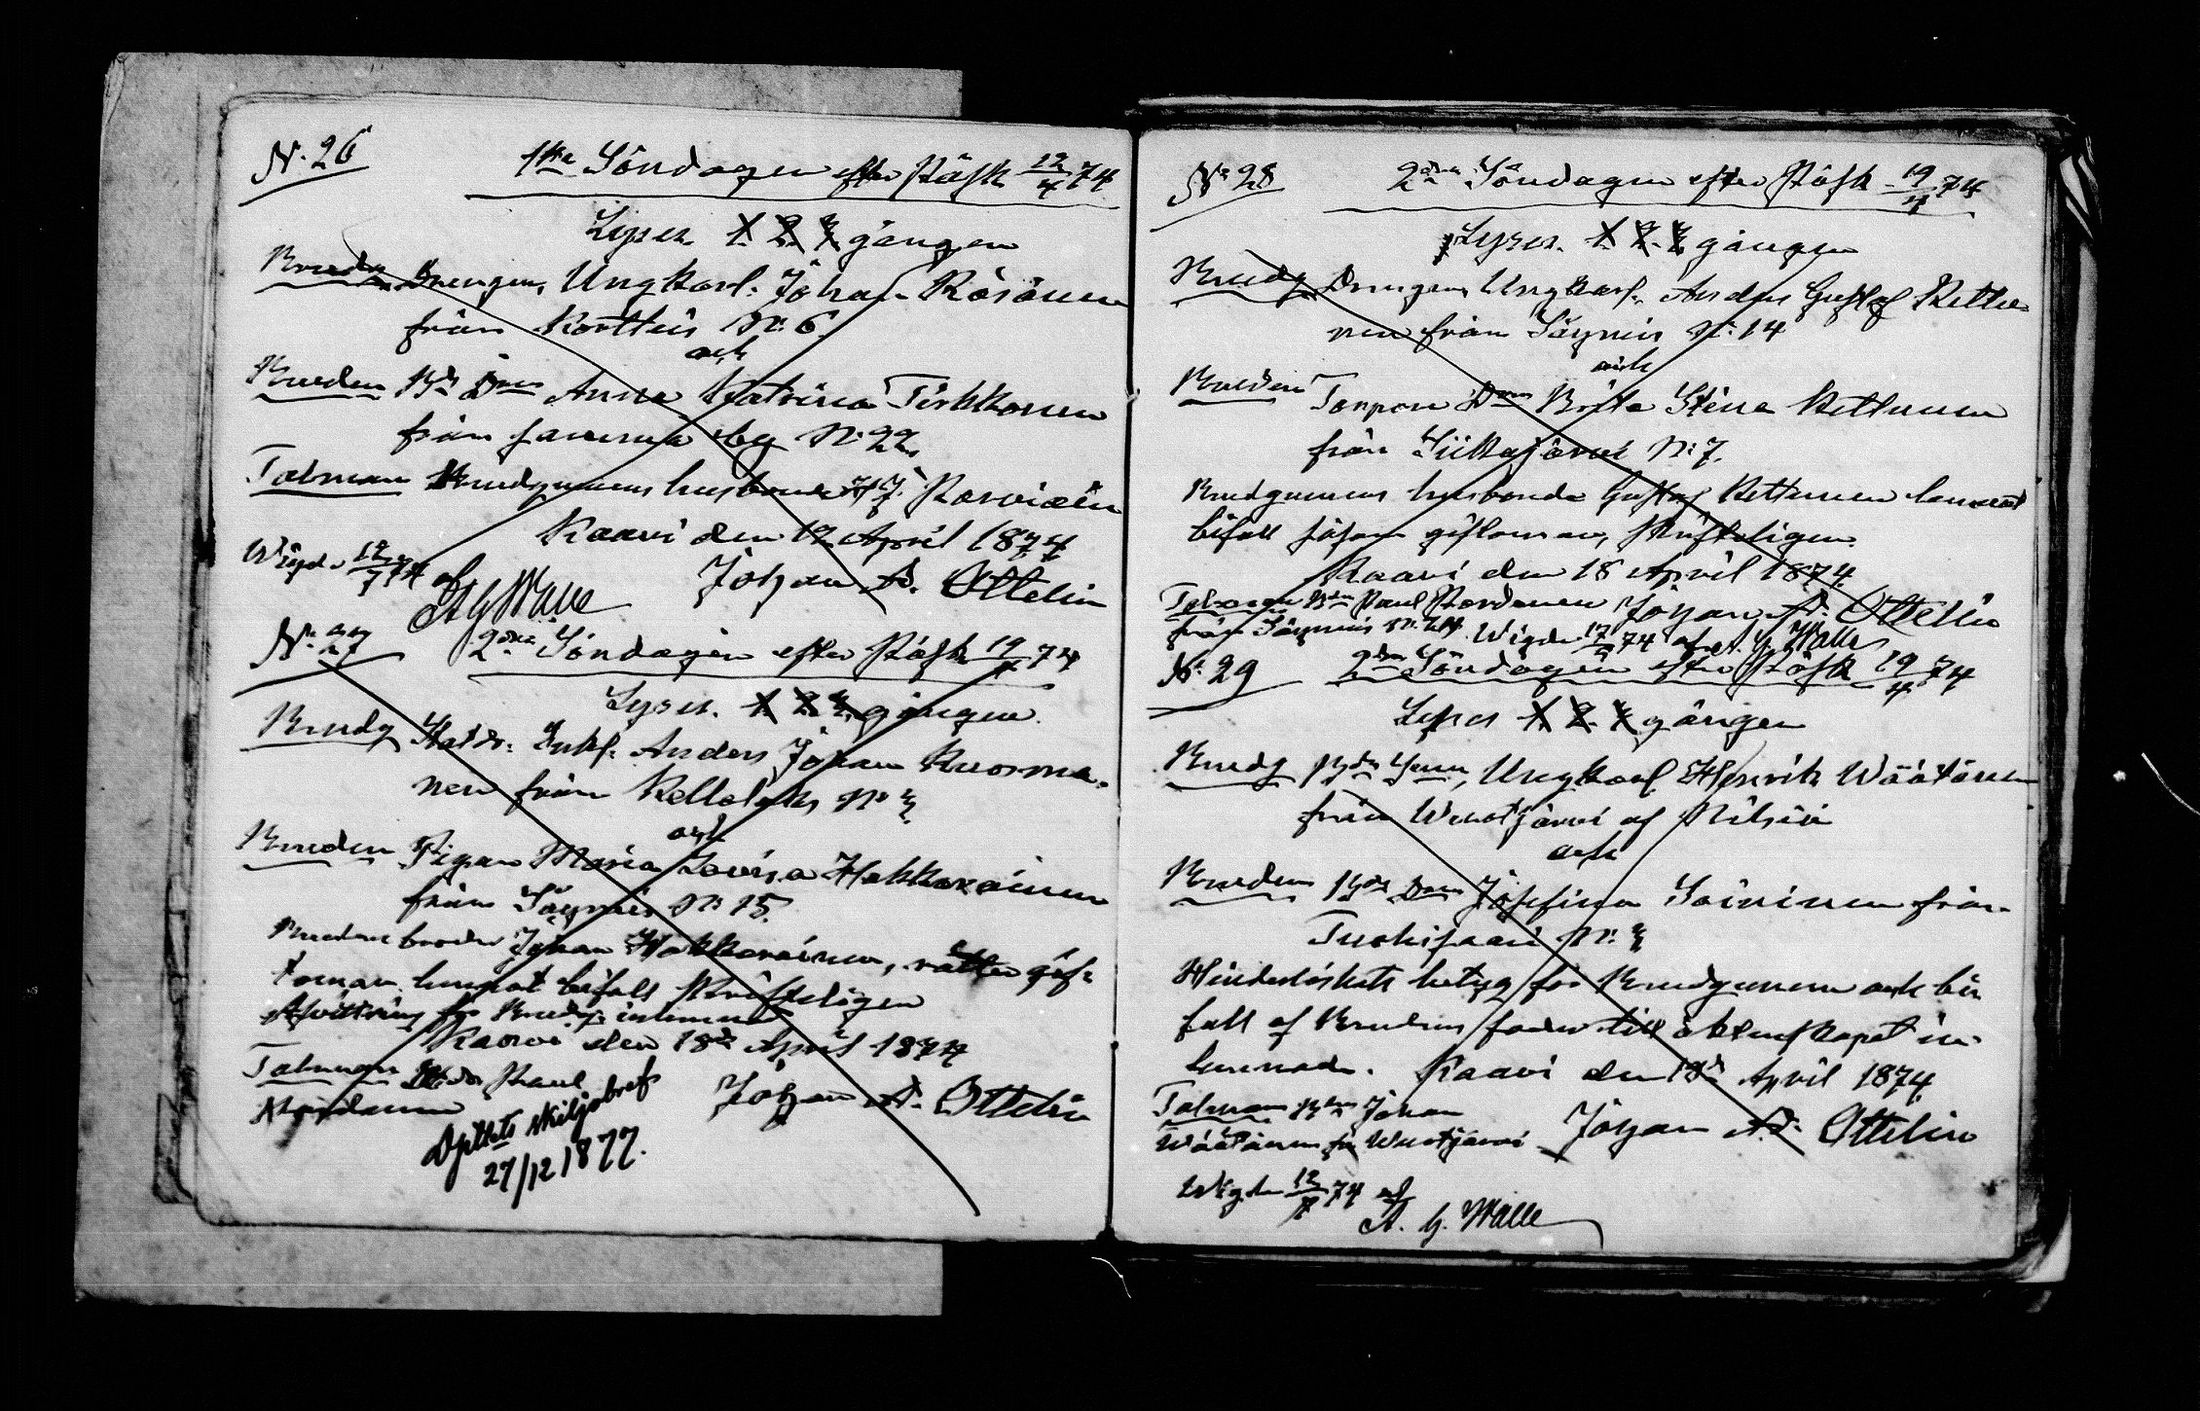 N. 26
1sta Söndagen efter Påsk 12/4 74.
Lyses 1. 2. 3 gången
Brudg Drengen, Ungkarl. Johan Räsänen
från Kortteis N: 6.
och
Bruden Bd Dom Anna Katrina Tirkkonen
från samma by N: 22.
Talman Brudgumens husbonde Parviain
Kaavi den 12 April 1874
Wigde 12/7 74 af Johan A. Ottelin
A G Walle
N: 27 2dra Söndagen efter Påsk 19/4 74
Lyses. 1. 2. 3. gången.
Brudg Enkl. Anders Johan Kuosma-
nen från N: 3
och
Bruden Pigan Maria Lovisa Hakkarainen
från Säyneis N: 15.
Brudens broder Johan Hakkarainen, rätter gif-
toman lemnat bifall skrifteligen
Afvittring för Brudg: inlemnad
Kaavi den 18de April 1874
Talman Paul
Johan A. Ottelin
skiljobref
27/12 1877.
N: 28 2dra Söndagen efter Påsk 19/4 74
Lyses. 1. 2. 3 gången
Brudg Drengen Ungkarl. Anders Gustaf Kettu-
nen från Säyneis N: 14
och
Bruden Torpare Dom Brita Stina Kettunen
från Siikajärvi N: 7.
Brudgumens husbonde Gustaf Kettunen lemnat
bifall såsom giftoman, skrifteligen.
Kaavi den 18 April 1874.
Talman Bdn Paul Johan A. Ottelin
från Säyneis N: Wigde 12/7 74 af A. G. Walle
N: 29 2dra Söndagen efter Påsk 19/4 74
Lyses 1. 2. 3 gången
Brudg Bde Sonen, Ungkarl Henrik Väätänen
från Wuotjärvi af Nilsiä
och
Bruden Bde Dom Josefina Soininen från
Tuohisaari N: 3
Hinderlöshets betyg för Brudgumen och bi-
fall af Brudens fader till äktenskapet in-
lemnade. Kaavi den 18de April 1874.
Talman Bdn Johan
Väätänen fr Wuotjärvi Johan A. Ottelin
Wigde 12/7 74 af
A. G. Walle